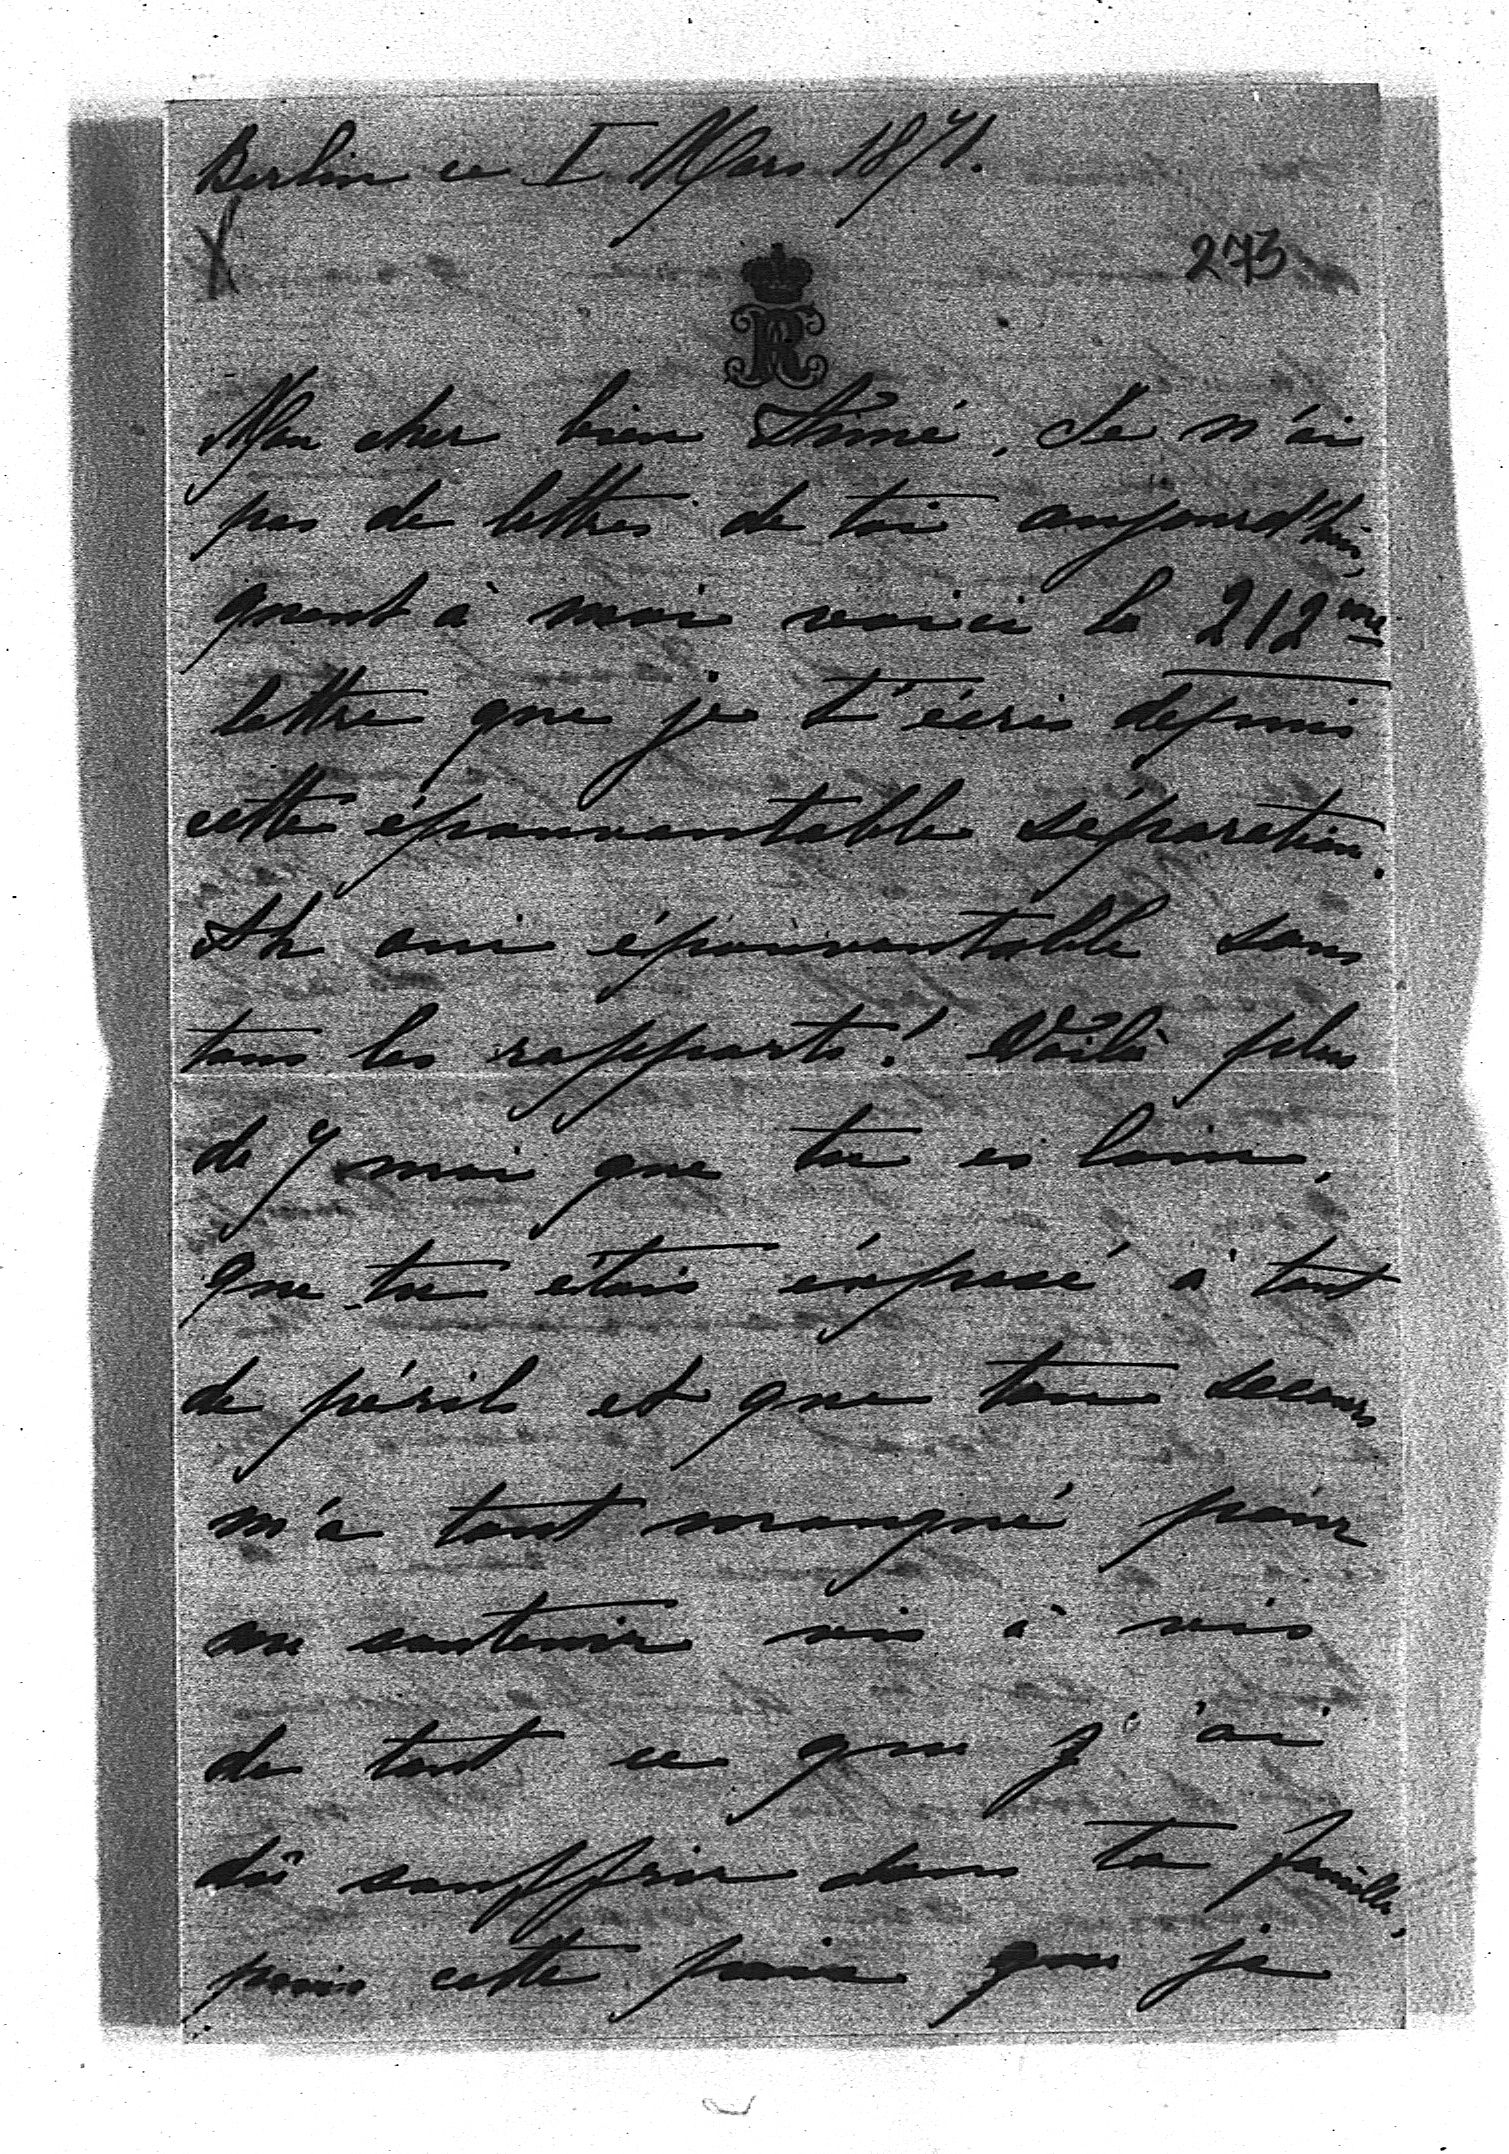 Berlin ce I Mars 1871.
X
273
R
Mon cher bien Aimé. Je n'ai
pas de lettres de toi aujourd'hui,
quant à moi voici la 212me
lettre que je t'écris depuis
cette épouvantable séparation.
Ah oui épouvantable sous
tous les rapports! Voilà plus
de 7 moi que tu es loin,
que tu étais exposé à tant
de périls et que ton secours
m'a tant manqué pour
me soutenir vis à vis
de tout ce que j'ai
dû souffrir dans ta famille,
puis cette paix que je